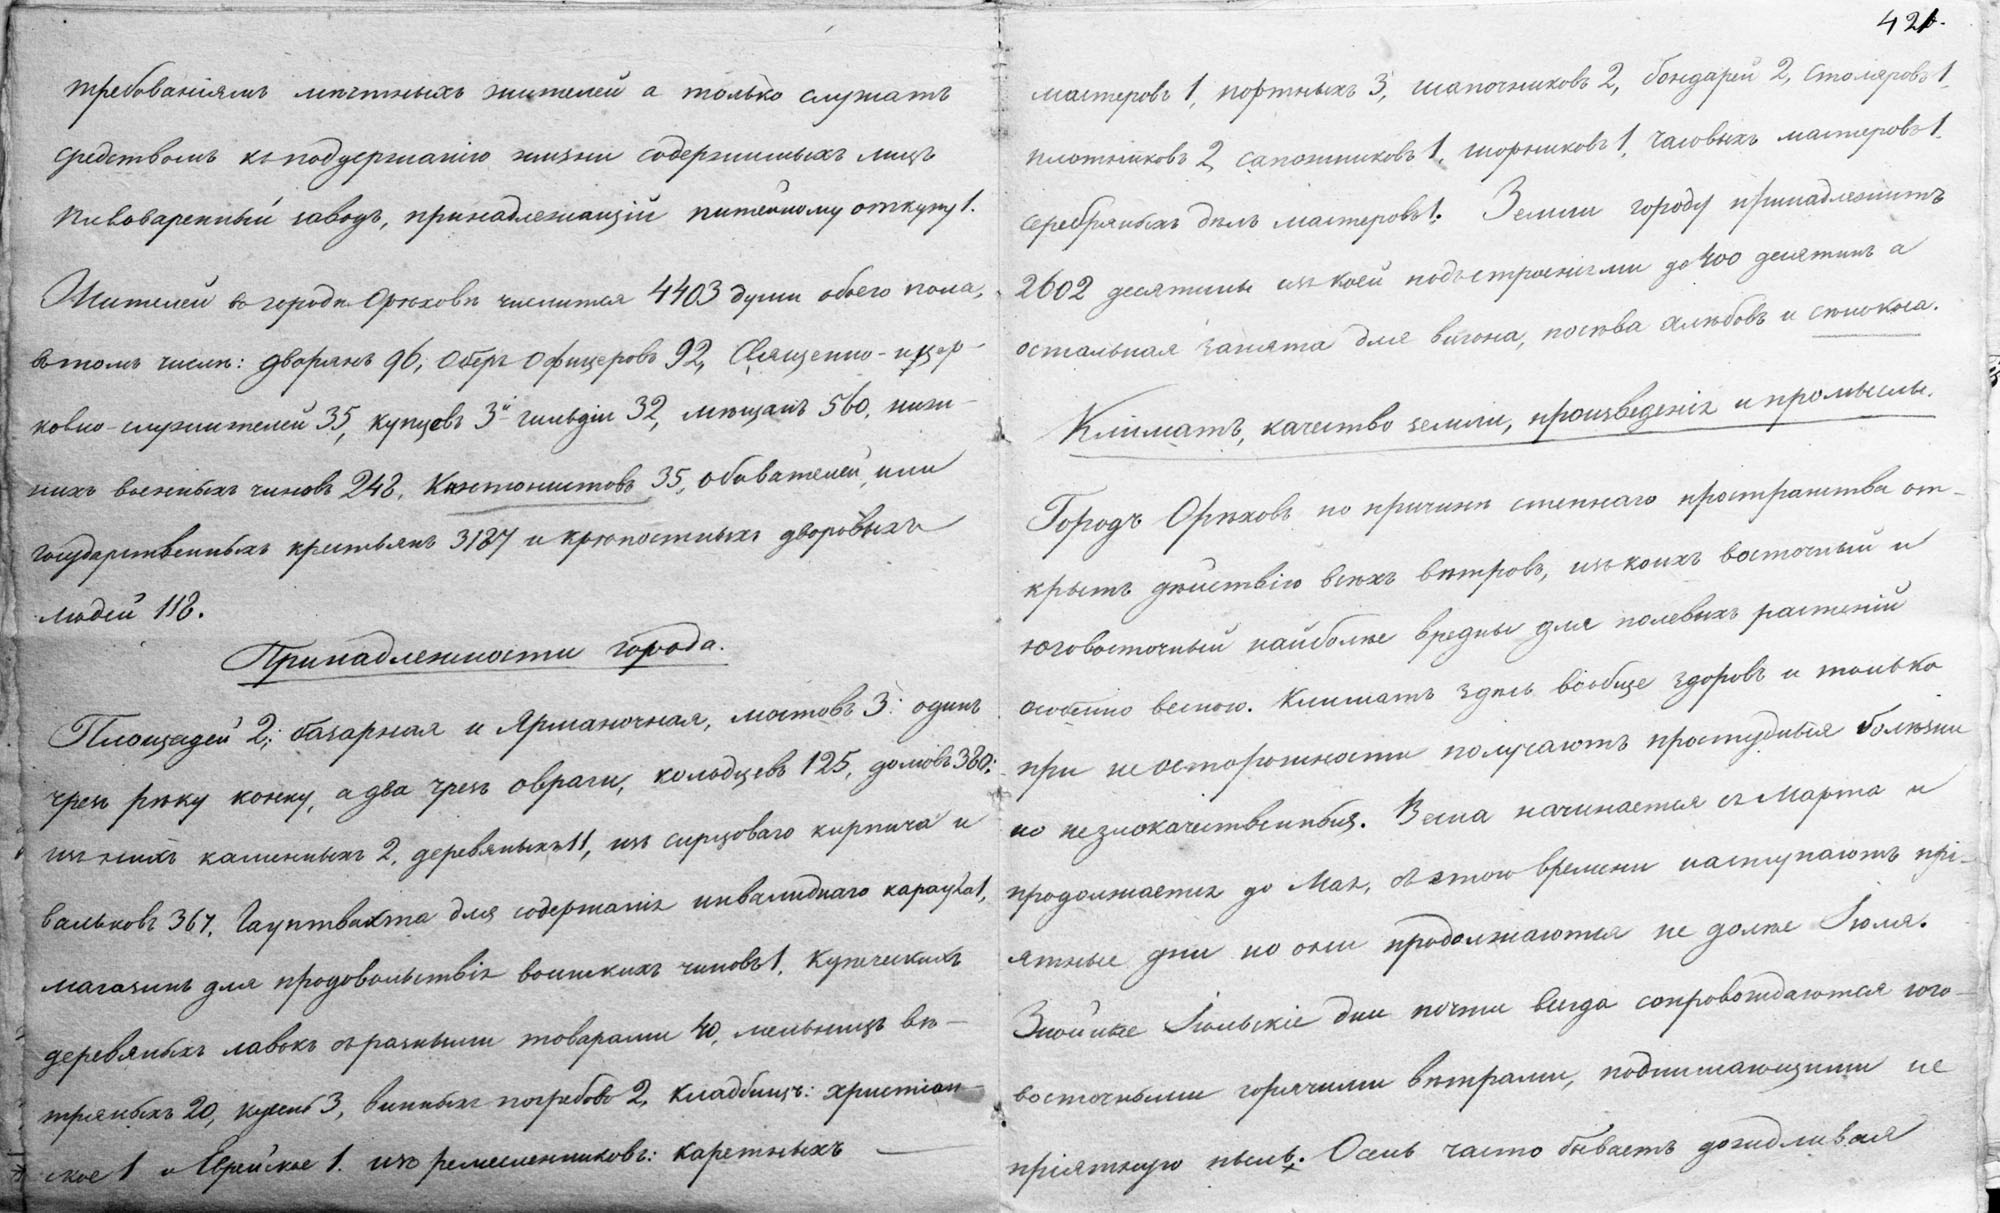 требованіямъ мѣстныхъ жителей а только служатъ
средствомъ къ поддержанію жизни содержимыхъ лицъ
Пивоваренный заводъ, принадлежащій питейному откупу 1.
Жителей въ городѣ Орѣховѣ числится 4403 души обоего пола,
въ томъ числѣ: дворянъ 96, Оберъ Офицеровъ 92, Священно- и цер-
ковно-служителей 35, купцовъ 3й гильдіи 32, мѣщанъ 560, ниж-
нихъ военныхъ чиновъ 248, Кантонистовъ 35, обывателей, или
государственныхъ крестьянъ 3187 и крѣпостныхъ дворовыхъ
людей 118.
Принадлежности города.
Площадей 2; базарная и Ярманочная, мостовъ 3: одинъ
чрезъ рѣку конку, а два чрезъ овраги, колодцевъ 125, домовъ 380:
изъ нихъ каменныхъ 2, деревяныхъ 11, изъ сырцоваго кирпича и
вальковъ 367, Гауптвахта для содержанія инвалиднаго караула 1,
магазинъ для продовольствія воинскихъ чиновъ 1, Купеческихъ
деревяныхъ лавокъ съ разными товарами 40, мельницъ вѣ-
тряныхъ 20, кузень 3, винныхъ погребовъ 2, Кладбищъ: христіан-
ское 1 и Еврейское 1. изъ ремесленниковъ: каретныхъ
421.
мастеровъ 1, портныхъ 3, шапочниковъ 2, бондарей 2, столяровъ 1,
плотниковъ 2, сапожниковъ 1, шорниковъ 1, часовыхъ мастеровъ 1.
серебряныхъ дѣлъ мастеровъ 1. Земли городу принадлежитъ
2602 десятины изъ коей подъ строеніями до 400 десятинъ а
остальная занята для выгона, посѣва хлѣбовъ и сѣнокоса.
Климатъ, качество земли, произведенія и промыслы.
Городъ Орѣховъ по причинѣ степнаго пространства от-
крытъ дѣйствію всѣхъ вѣтровъ, изъ коихъ восточный и
юговосточный наиболѣе вредны для полевыхъ растеній
особенно весною. Климатъ здѣсь вообще здоровъ и только
при неосторожности получаютъ простудныя болѣзни
но незлокачественныя. Весна начинается съ Марта и
продолжается до Мая, съ этого времени наступаютъ прі-
ятные дни но они продолжаются не долѣе Іюля.
Знойные Іюльскіе дни почти всегда сопровождаются юго-
восточными горячими вѣтрами, поднимающими не
пріятную пыль. Осень часто бываетъ дождливая